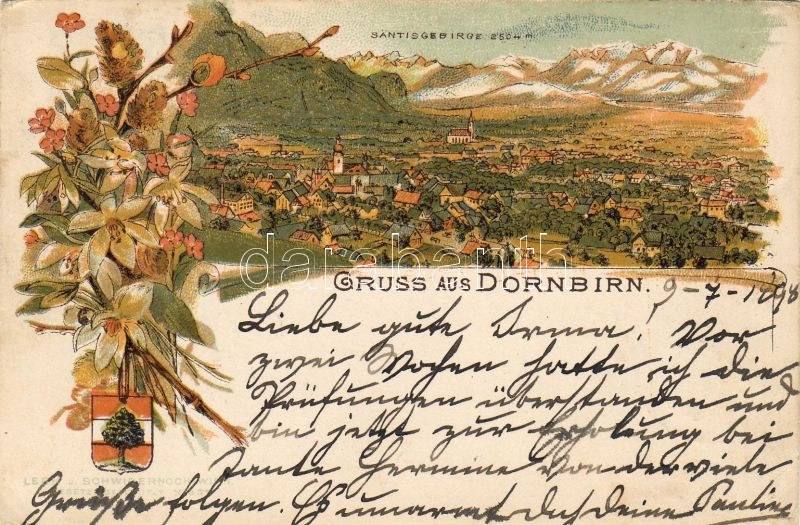 SÄNTISGEBIRGE 2504 m.
GRUSS AUS DORNBIRN.
9-7-1898
Liebe gute Irma! Vor
zwei Wochen hatte ich die
Prüfungen überstanden und
bin jetzt zur Erholung bei
Tante Hermine von der viele
Grüße folgen. Es umarmt Dich Deine Pauline
darabanth